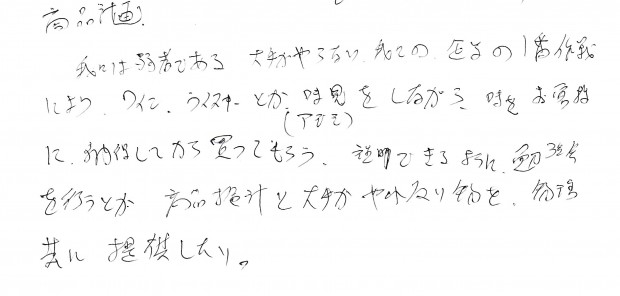 商品計画
我々は弱者である 大手がやらない 我々の 一番作戦
により、ワイン、ウイスキーとか、味見をしながら、お客様
(アジミ)
に、納得してから買ってもらう、説明できるように、勉強
を行うとか 商品 と大手が やれない物を、
共に 提供したい。